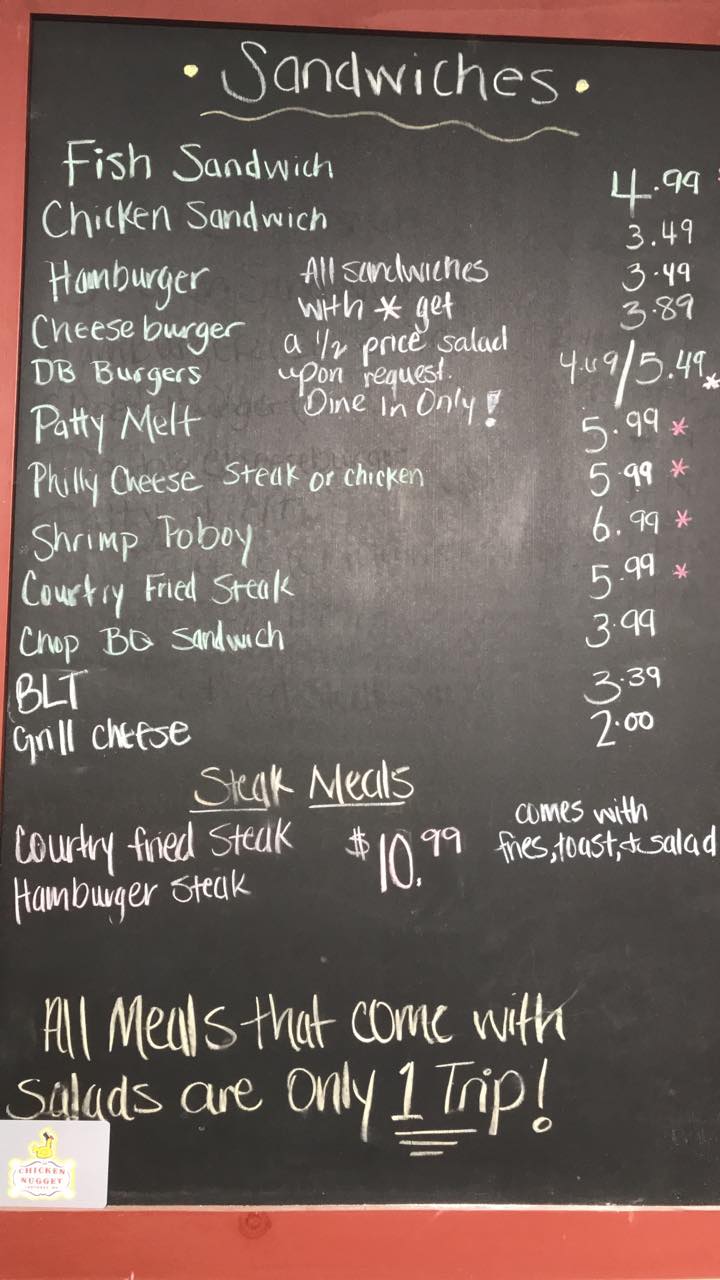 • Sandwiches •
Fish Sandwich 4.99
Chicken Sandwich 3.49
Hamburger 3.49
Cheeseburger 3.89
DB Burgers 4.69/5.49 *
Patty Melt 5.99 *
Philly Cheese Steak or chicken 5.99 *
Shrimp Poboy 6.99 *
Courtry Fried Steak 5.99 *
Chop BQ Sandwich 3.99
BLT 3.39
Grill cheese 2.00
All sandwiches
with * get
a 1/2 price salad
upon request.
Dine In Only!
Steak Meals
Courtry fried Steak $10.99
Hamburger Steak
comes with
fries, toast, + salad
All Meals that come with
salads are only 1 Trip!
CHICKEN
NUGGET